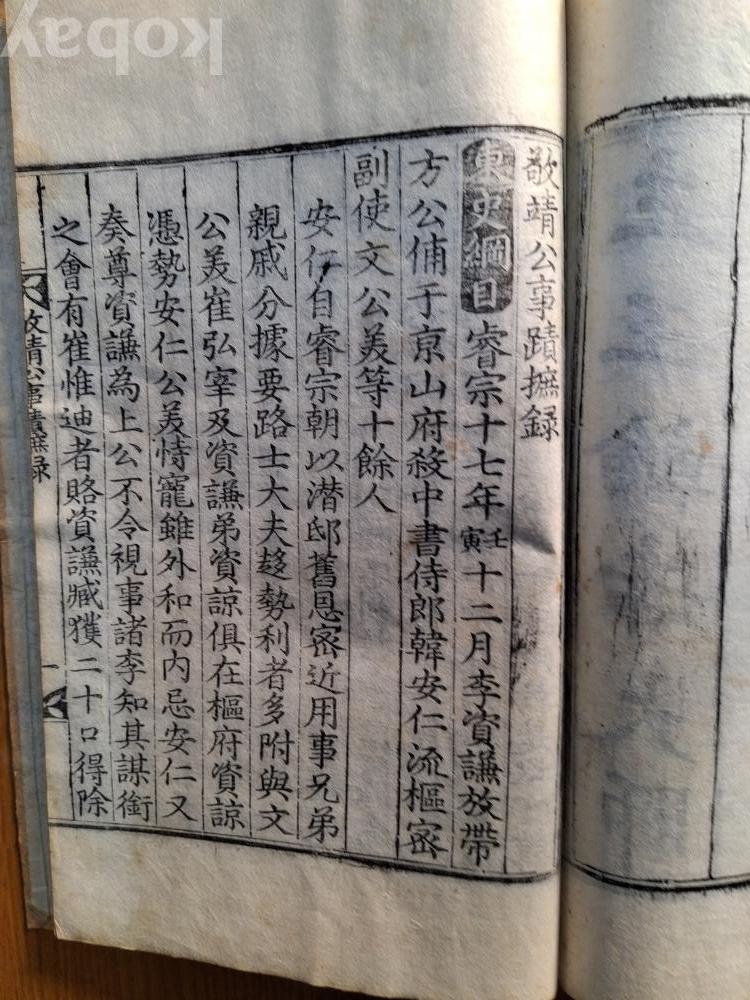 敬靖公事蹟摭録
東史綱目睿宗十七年壬寅十二月李資謙放帶
方公俌于京山府殺中書侍郎韓安仁流樞密
副使文公美等十餘人
安仁自睿宗朝以潜邸舊恩密近用事兄弟
親戚分據要路士大夫趍勢利者多附與文
公美崔弘宰及資謙弟資諒俱在樞府資諒
憑勢安仁公美恃寵雖外和而内忌安仁又
奏尊資謙為上公不令視事諸李知其謀銜
之會有崔惟迪者賂資謙臧獲二十口得除
靖公事蹟摭録
一
kobay